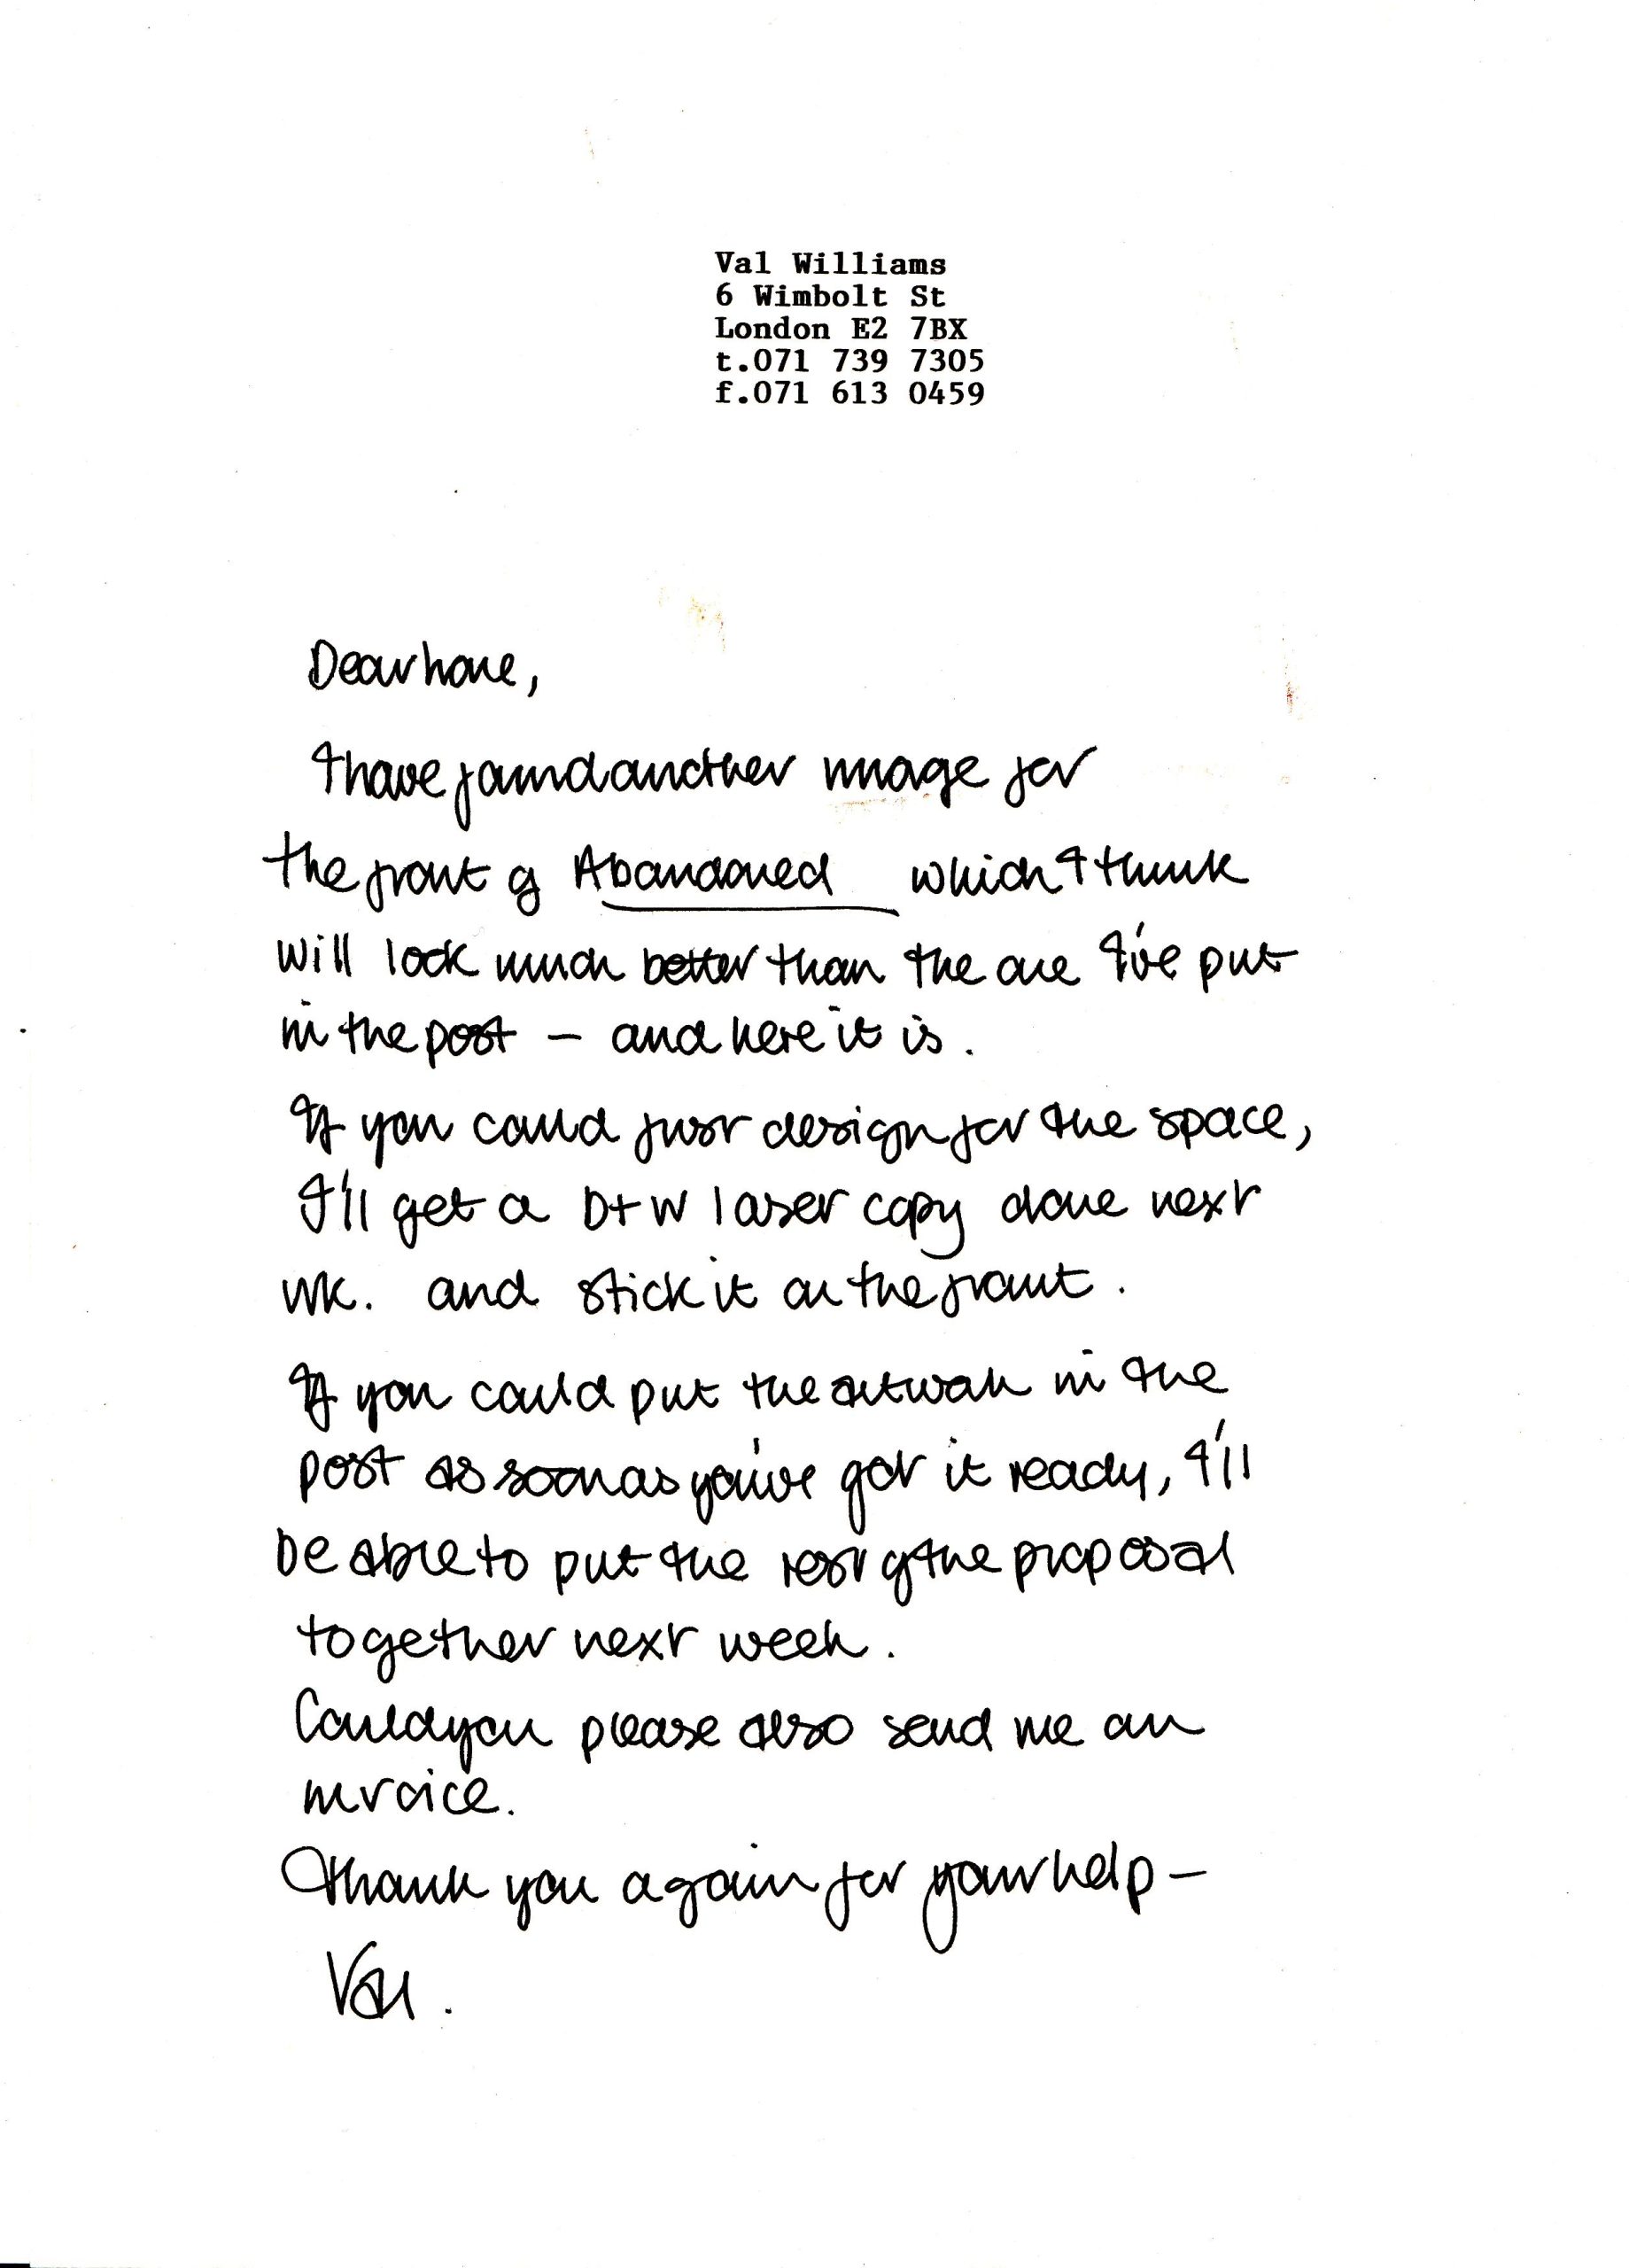 Val Williams
6 Wimbolt St
London E2 7BX
t.071 739 7305
f.071 613 0459
Dear
I have found another image for
the front of Abandoned which I think
will look much better than the one I've put
in the post – and here it is.
If you could just design for the space,
I'll get a b+w laser copy done next
wk. and stick it on the front.
If you could put the artwork in the
post as soon as you've got it ready, I'll
be able to put the rest of the proposal
together next week.
Could you please also send me an
invoice.
Thank you again for your help –
Val.